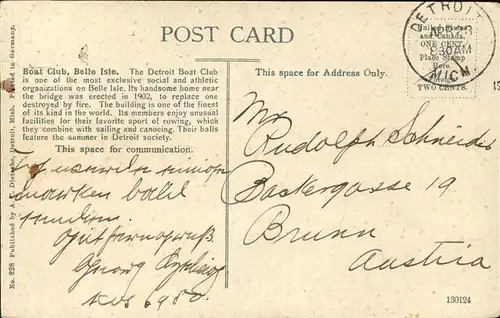 POST CARD
Boat Club, Belle Isle. The Detroit Boat Club
is one of the most exclusive social and athletic
organizations on Belle Isle. Its handsome home near
the bridge was erected in 1902, to replace one
destroyed by fire. The building is one of the finest
of its kind in the world. Its members enjoy unusual
facilities for their favorite sport of rowing, which
they combine with sailing and canoeing. Their balls
feature the summer in Detroit society.
This space for communication.
marken bald
Georg
No. 228 Published by A. C. Dietsche, Detroit, Mich. Printed in Germany.
This space for Address Only.
United States
and Canada,
ONE CENT
Place Stamp
Here.
TWO CENTS.
DETROIT
830AM
MICH.
Mr
Rudolph Schneider
Backergasse 19
Brunn
Austria
130124